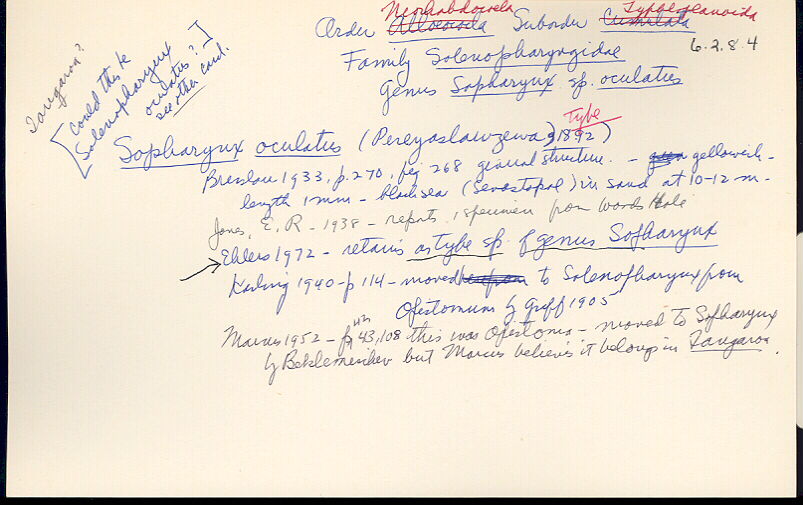 Neorhabdocoela Typhloplanoida
Order Allocoela Suborder Cumulata
6.2.8.4
Family Solenopharyngidae
Genus Sopharynx sp. oculatus
Tangaroa?
[Could this be
Solenopharynx
oculatus?]
see other card.
Type
Sopharynx oculatus (Pereyaslawzewa, 1892)
Bresslau 1933, p. 270, fig 268 general structure. - yellowish -
length 1 mm - black sea (Sevastopol) in sand at 10-12 m.
Jones, E. R. - 1938 - reports 1 specimen from Woods Hole
→ Ehlers 1972 - retains as type sp. of genus Sopharynx
Karling 1940 - p 114 - moved to Solenopharynx from
Opistomum by Graff 1905
Marcus 1952 - p 43, 108 this was Opistoma - moved to Sopharynx
by Beklemischev but Marcus believes it belongs in Tangaroa.